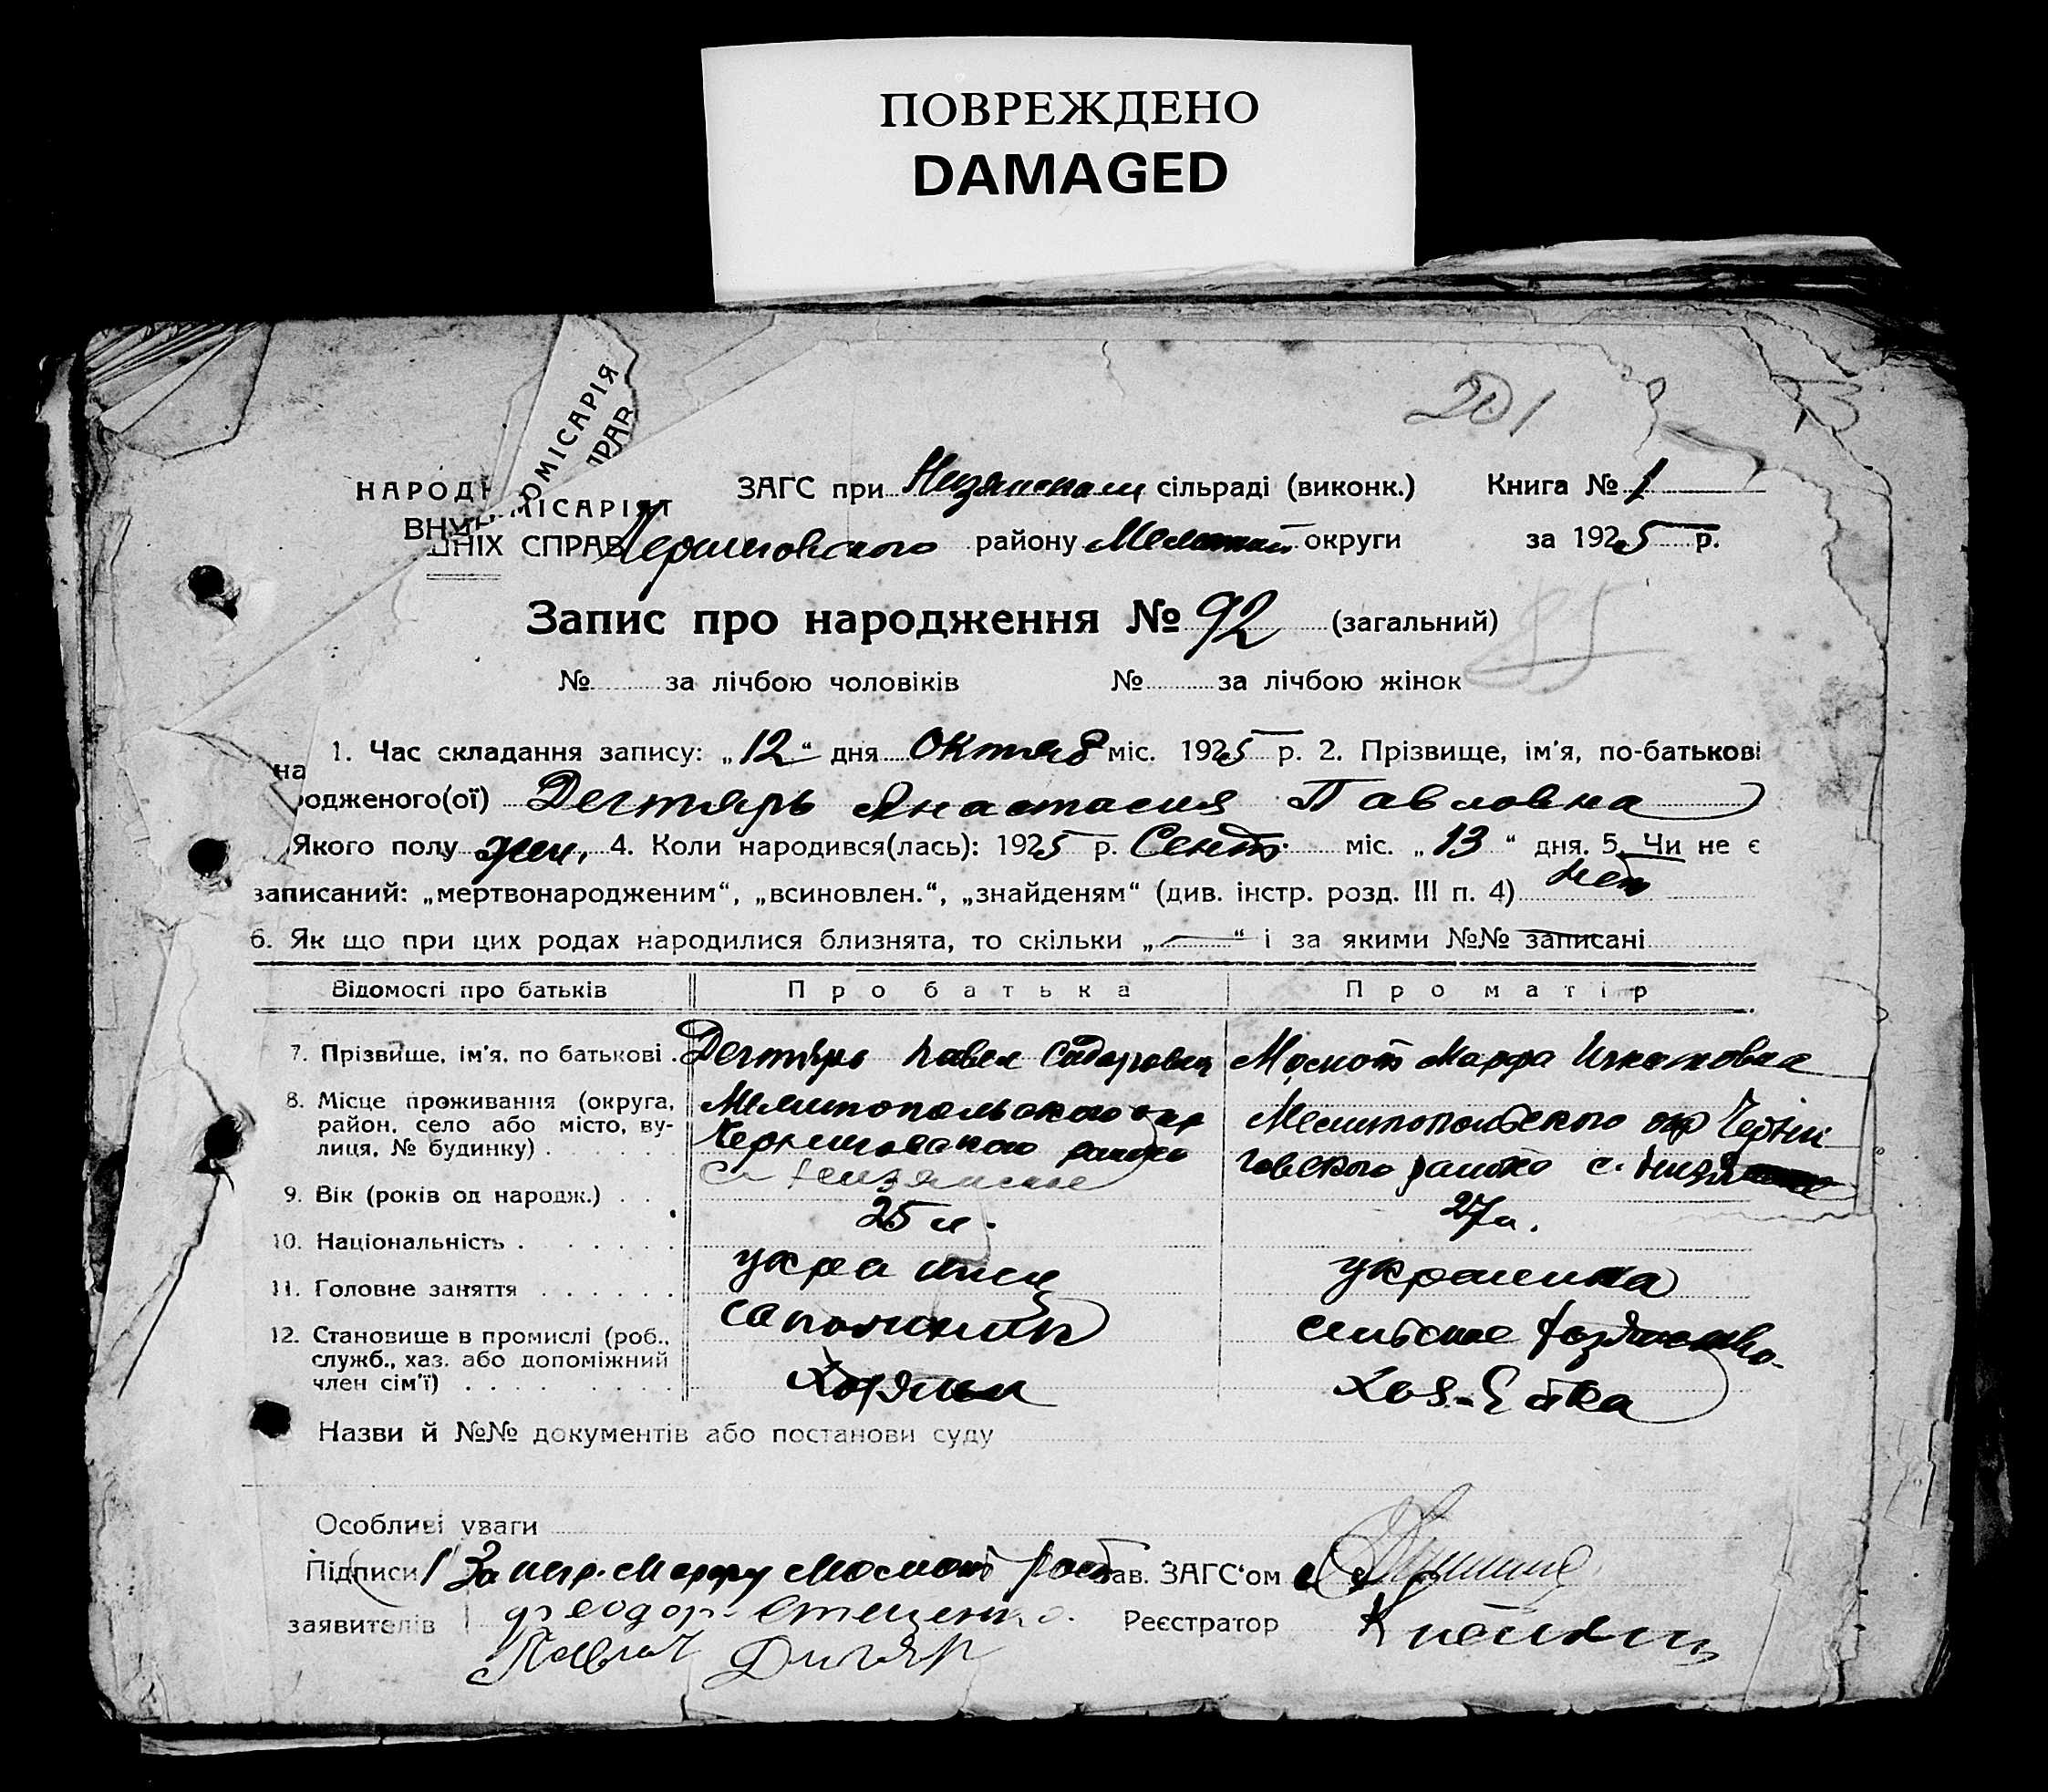 ПОВРЕЖДЕНО
DAMAGED
201
ОМІСАРІЯ
ПРАВ
НАРОДН МІСАРІЯТ ЗАГС при Низянском сільраді (виконк.) Книга № 1
ВНУ ШНІХ СПРАВ Черниговского району Мелитоп округи за 1925 р.
Запис про народження № 92 (загальний)
85
№ за лічбою чоловіків № за лічбою жінок
1. Час складання запису: „12“ дня Октяб міс. 1925 р. 2. Прізвище, ім'я, по-батькові
на
родженого(ої) Дегтярь Анастасия Павловна
Якого полу жен. 4. Коли народився(лась): 1925 р. Сент. міс. „13“ дня. 5. Чи не є
записаний: „мертвонародженим“, „всиновлен.“, „знайденям“ (див. інстр. розд. III п. 4) нет
6. Як що при цих родах народилися близнята, то скільки „—“ і за якими №№ записані
Відомості про батьків Про батька Про матір
7. Прізвище, ім'я, по батькові . Дегтярь Павел Сидорович Момот Марфа Игнатовна
8. Місце проживання (округа, район, село або місто, вулиця, № будинку) . Мелитопольского окр Мелитопольского окр Черни
Черниговского района говского района с.
с.
9. Вік (років од народж.) . . 25 л. 27 л.
10. Національність . украинец украинка
11. Головне заняття . сапожник сельское хозяйство
12. Становище в промислі (роб., служб., хаз. або допоміжний член сім'ї) . хозяин хоз-йка
Назви й №№ документів або постанови суду
Особливі уваги
Підписи За негр. Марфу Момот расп Зав. ЗАГС'ом
заявителів Феодор Стеценко. Реєстратор
Павел Дигтяр